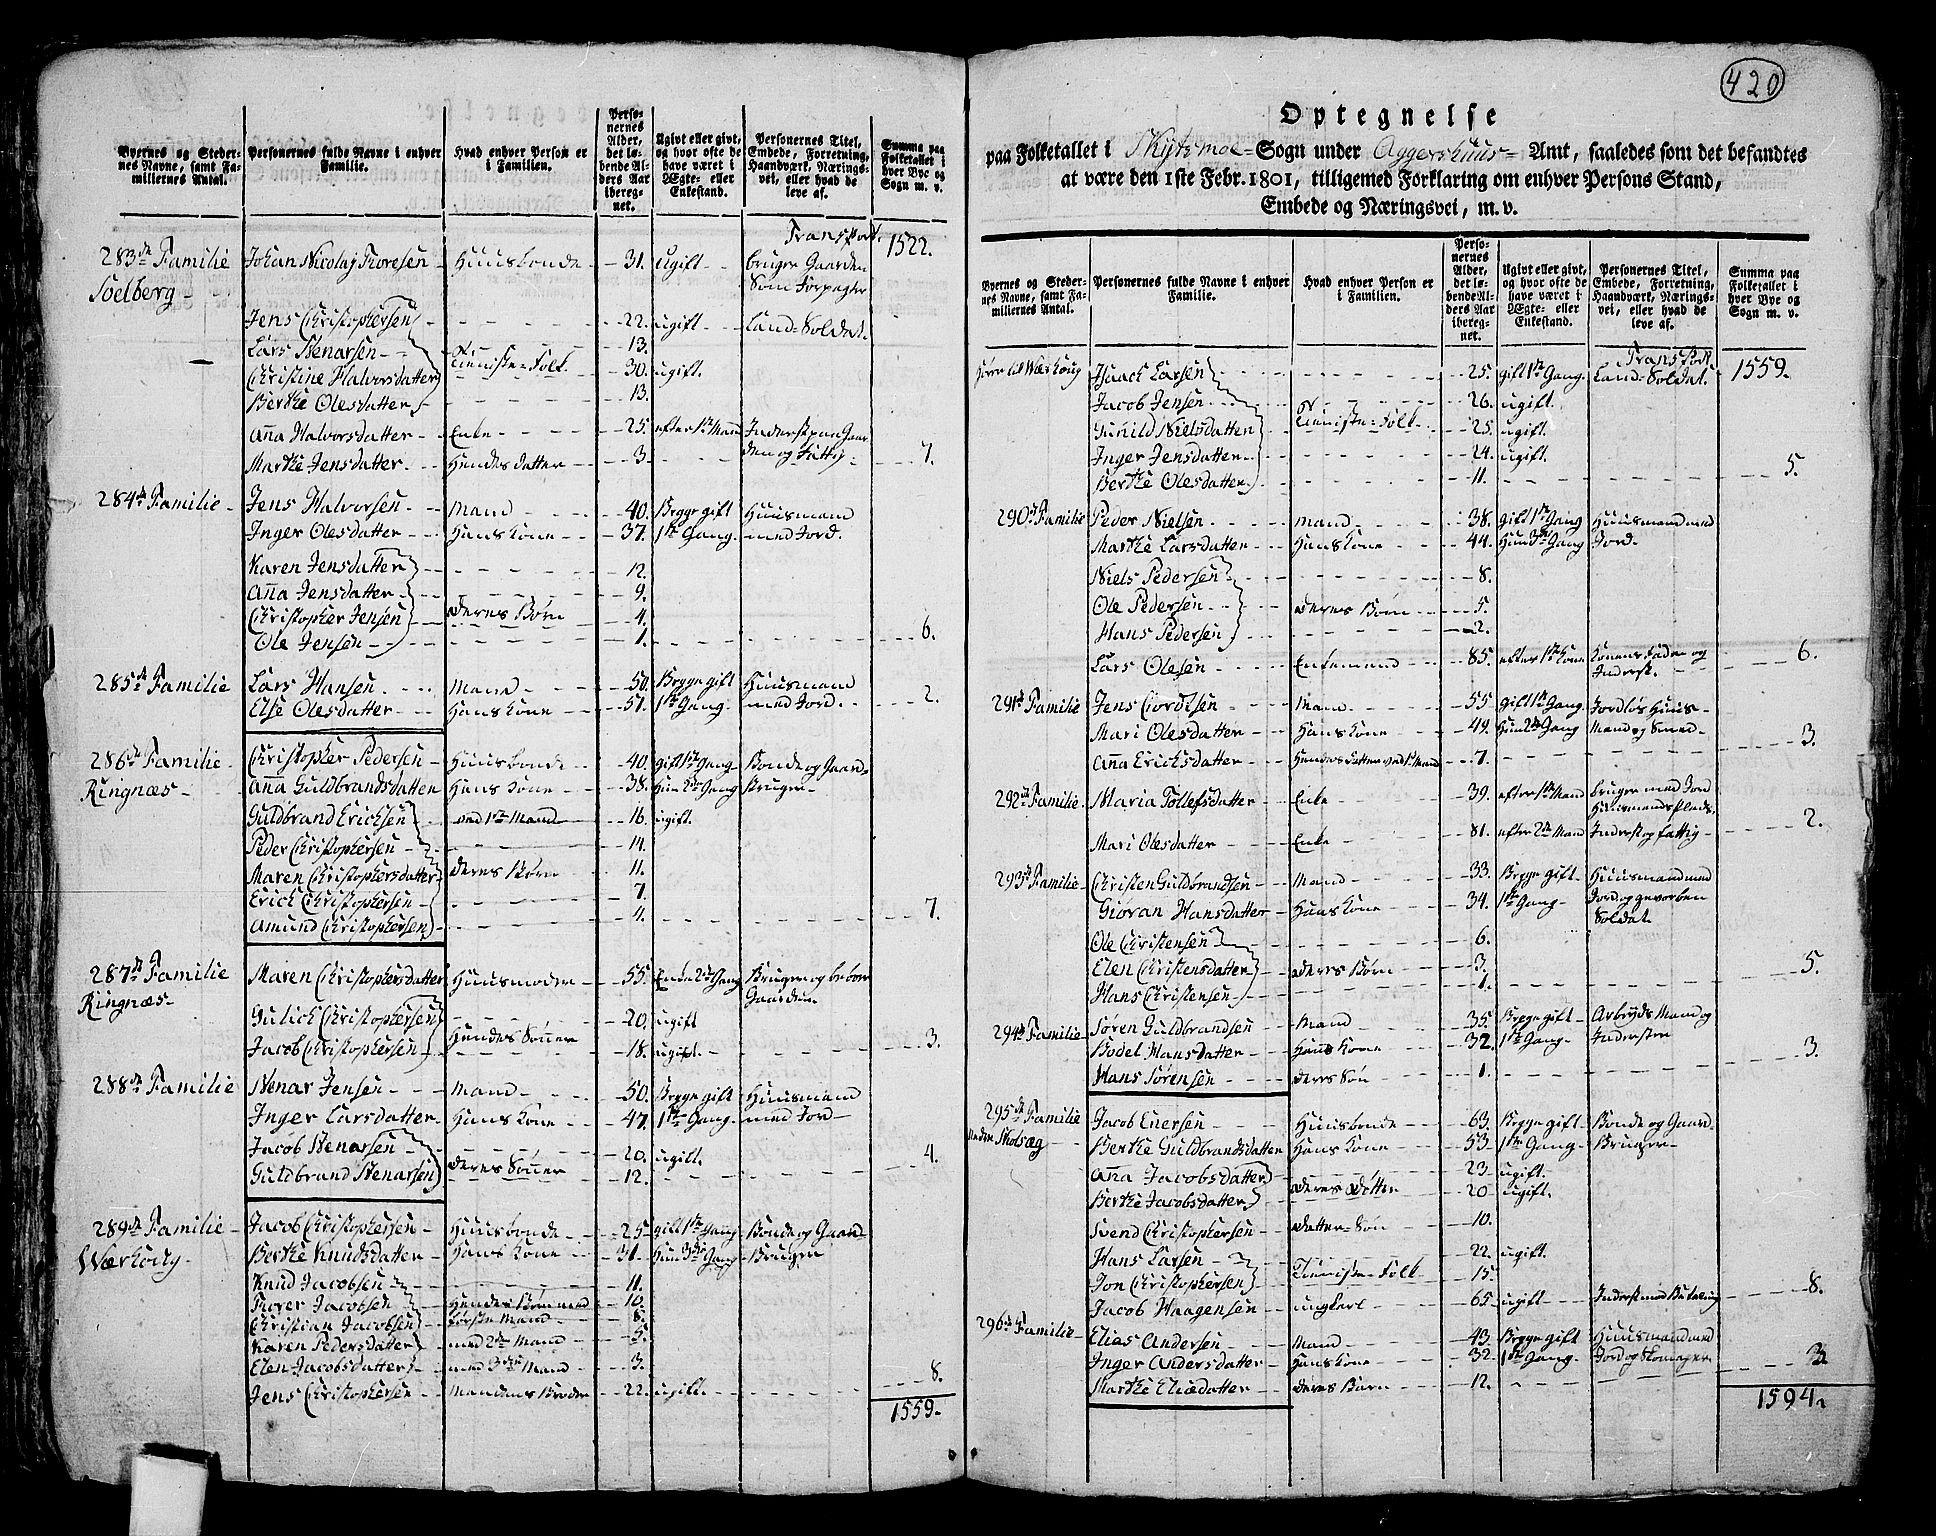 Byernes og Stedernes Navne, samt Familiernes Antal.
Personernes fulde Navne i enhver Familie.
Hvad enhver Person er i Familien.
Personernes Alder, det løbende Alders Aar iberegnet.
Ugivt eller givt, og hvor ofte de have været i Ægte- eller Enkestand.
Personernes Titel, Embede, Forretning, Haandværk, Næringsvei, eller hvad de leve af.
Summa paa Folketallet i hver Bye og Sogn m. v.
Transport. 1522.
283de Familie Johan Nicolaj Thoresen Huusbonde 31. Ugift bruger Gaarden
Soelberg Som Forpagter
Jens Christophersen 22. ugift Land-Soldat.
Lars Stenarsen 13.
Christine Halvorsdatter Tieniste-Folk 30. ugift.
Berthe Olesdatter 13.
Anna Halvorsdatter Enke 25. efter 1ste Mand Inderst paa Gaar
Marthe Jensdatter Hendes datter 3. den og Fattig 7.
284de Familie Jens Halvorsen Mand 40. Begge gift Huusmand
Inger Olesdatter Hans Kone 37. 1ste Gang med Jord.
Karen Jensdatter 12.
Anna Jensdatter 9.
Christopher Jensen deres Børn 4.
Ole Jensen 1. 6.
285de Familie Lars Hansen Mand 50. Begge gift Huusmand
Else Olesdatter Hans Kone 51. 1ste Gang med Jord. 2.
286de Familie Christopher Pedersen Huusbonde 40. gift 1ste Gang Bonde og Gaard-
Ringnæs Anna Guldbrandsdatter Hans Kone 38. Hun 2den Gang Bruger
Guldbrand Ericksen ved 1ste Mand 16. ugift.
Peder Christophersen 14.
Maren Christophersdatter deres Børn 11.
Erich Christophersen 7.
Amund Christophersen 4. 7.
287de Familie Maren Christophersdatter Huusmoder 55. Enke 2den Gang Bruger og beboer
Ringnæs Gaarden
Gulich Christophersen 20. ugift
Jacob Christophersen Hendes Sønner 18. ugift. 3.
288de Familie Stenar Jensen Mand 50. Begge gift Huusmand
Inger Larsdatter Hans Kone 47. 1ste Gang med Jord
Jacob Stenarsen 20. ugift.
Guldbrand Stenarsen deres Sønner 12. 4.
289de Familie Jacob Christophersen Huusbonde 25. gift 1ste Gang Bonde og Gaard-
Berthe Knudsdatter Hans Kone 31. Hun 3die Gang Bruger
Knud Jacobsen 11.
Thorer Jacobsen Hendes Børn med 10.
Christian Jacobsen første Mand 8.
Karen Pedersdatter med 2den Mand 5.
Elen Jacobsdatter med 3die Mand 3.
Jens Christophersen Mandens Broder 22. ugift. 8.
1559.
420
Optegnelse
paa Folketallet i Sogn under Aggershuus Amt, saaledes som det befandtes
at være den 1ste Febr. 1801, tilligemed Forklaring om enhver Persons Stand,
Embede og Næringsvei, m. v.
Byernes og Stedernes Navne, samt Familiernes Antal.
Personernes fulde Navne i enhver Familie.
Hvad enhver Person er i Familien.
Personernes Alder, det løbende Alders Aar iberegnet.
Ugivt eller givt, og hvor ofte de have været i Ægte- eller Enkestand.
Personernes Titel, Embede, Forretning, Haandværk, Næringsvei, eller hvad de leve af.
Summa paa Folketallet i hver Bye og Sogn m. v.
Transport 1559.
Isaach Larsen 25. gift 1ste Gang Land-Soldat.
Jacob Jensen 26. ugift.
Gunild Nielsdatter Tieniste-Folk 25. ugift.
Inger Jensdatter 24. ugift.
Berthe Olesdatter 11. 5.
290de Familie Peder Nielsen Mand 38. gift 1ste Gang Huusmand med
Marthe Larsdatter Hans Kone 44. Hun 3die Gang Jord.
Niels Pedersen 8.
Ole Pedersen deres Børn 5.
Hans Pedersen 2.
Lars Olesen Enkemand 85. efter 1ste Kone Konens Fader og
Inderst. 6.
291de Familie Jens Mand 55 gift 1ste Gang Jordløs Huus-
Mari Olesdatter Hans Kone 49. Hun 2den Gang Mand og Smed
Anna Erichsdatter Hendes datter ved 1ste Mand 7. 3.
292de Familie Maria Tollefsdatter Enke 39. efter 1ste Mand bruger med Jord
Huusmands Plads.
Mari Olesdatter Enke 81. efter 2den Mand Inderst og fattig 2.
293de Familie Christen Guldbrandsen Mand 33. Begge gift Huusmand med
Giøran Hansdatter Hans Kone 34. 1ste Gang Jord og gevorben
Soldat.
Ole Christensen 6.
Elen Christensdatter deres Børn 3.
Hans Christensen 1. 5.
294de Familie Søren Guldbrandsen Mand 35. Begge gift Arbeyds Mand og
Bodel Hansdatter Hans Kone 32. 1ste Gang Inderster
Hans Sørensen deres Søn 1. 3.
295de Familie Jacob Huusbonde 63. Begge gift Bonde og Gaard-
Berthe Guldbrandsdatter Hans Kone 53. 1ste Gang Bruger
Anna Jacobsdatter 23. ugift.
Berthe Jacobsdatter deres døtter 20 ugift.
Svend Christophersen datter-Søn 10.
Hans Larsen 22. ugift.
Jon Christophersen Tieniste-Folk 15.
Jacob Haagensen ungkarl 65 ugift Inderst med Betaling 8.
296de Familie Elias Andersen Mand 43. Begge gift Huusmand med
Inger Andersdatter Hans Kone 32. 1ste Gang Jord og Skomager
Marthe Eliædatter deres Barn 12. 3
1594.